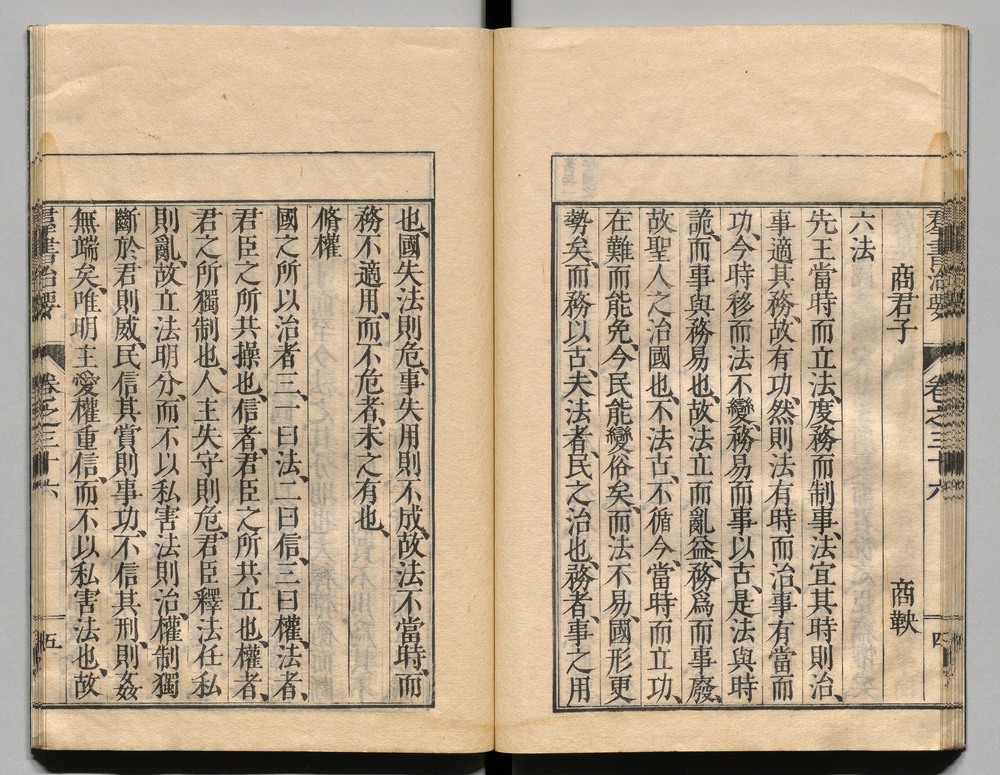 羣書治要 卷之三十六 四
商君子 商鞅
六法
先王當時而立法、度務而制事、法宜其時則治、
事適其務、故有功、然則法有時而治、事有當而
功、今時移而法不變、務易而事以古、是法與時
詭、而事與務易也、故法立而亂益、務爲而事廢、
故聖人之治國也、不法古、不循今、當時而立功、
在難而能免、今民能變俗矣、而法不易、國形更
勢矣、而務以古、夫法者、民之治也、務者、事之用
也、國失法則危、事失用則不成、故法不當時、而
務不適用、而不危者、未之有也、
脩權
國之所以治者三、一曰法、二曰信、三曰權、法者、
君臣之所共操也、信者、君臣之所共立也、權者、
君之所獨制也、人主失守則危、君臣釋法任私
則亂、故立法明分、而不以私害法則治、權制獨
斷於君則威、民信其賞則事功、不信其刑、則姦
無端矣、唯明主愛權重信、而不以私害法也、故
羣書治要 卷之三十六 五